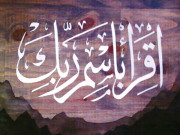 اقْرَأْ بِاسْمِ رَبِّكَ